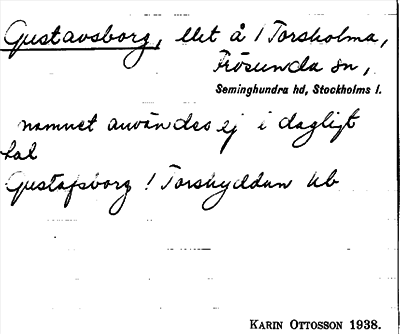 Gustavsborg, llet å /Torsholma,
Frösunda sn,
Seminghundra hd, Stockholms l.
namnet användes ej i dagligt
tal
Gustafsborg / Torskyddan Ub
KARIN OTTOSSON 1938.